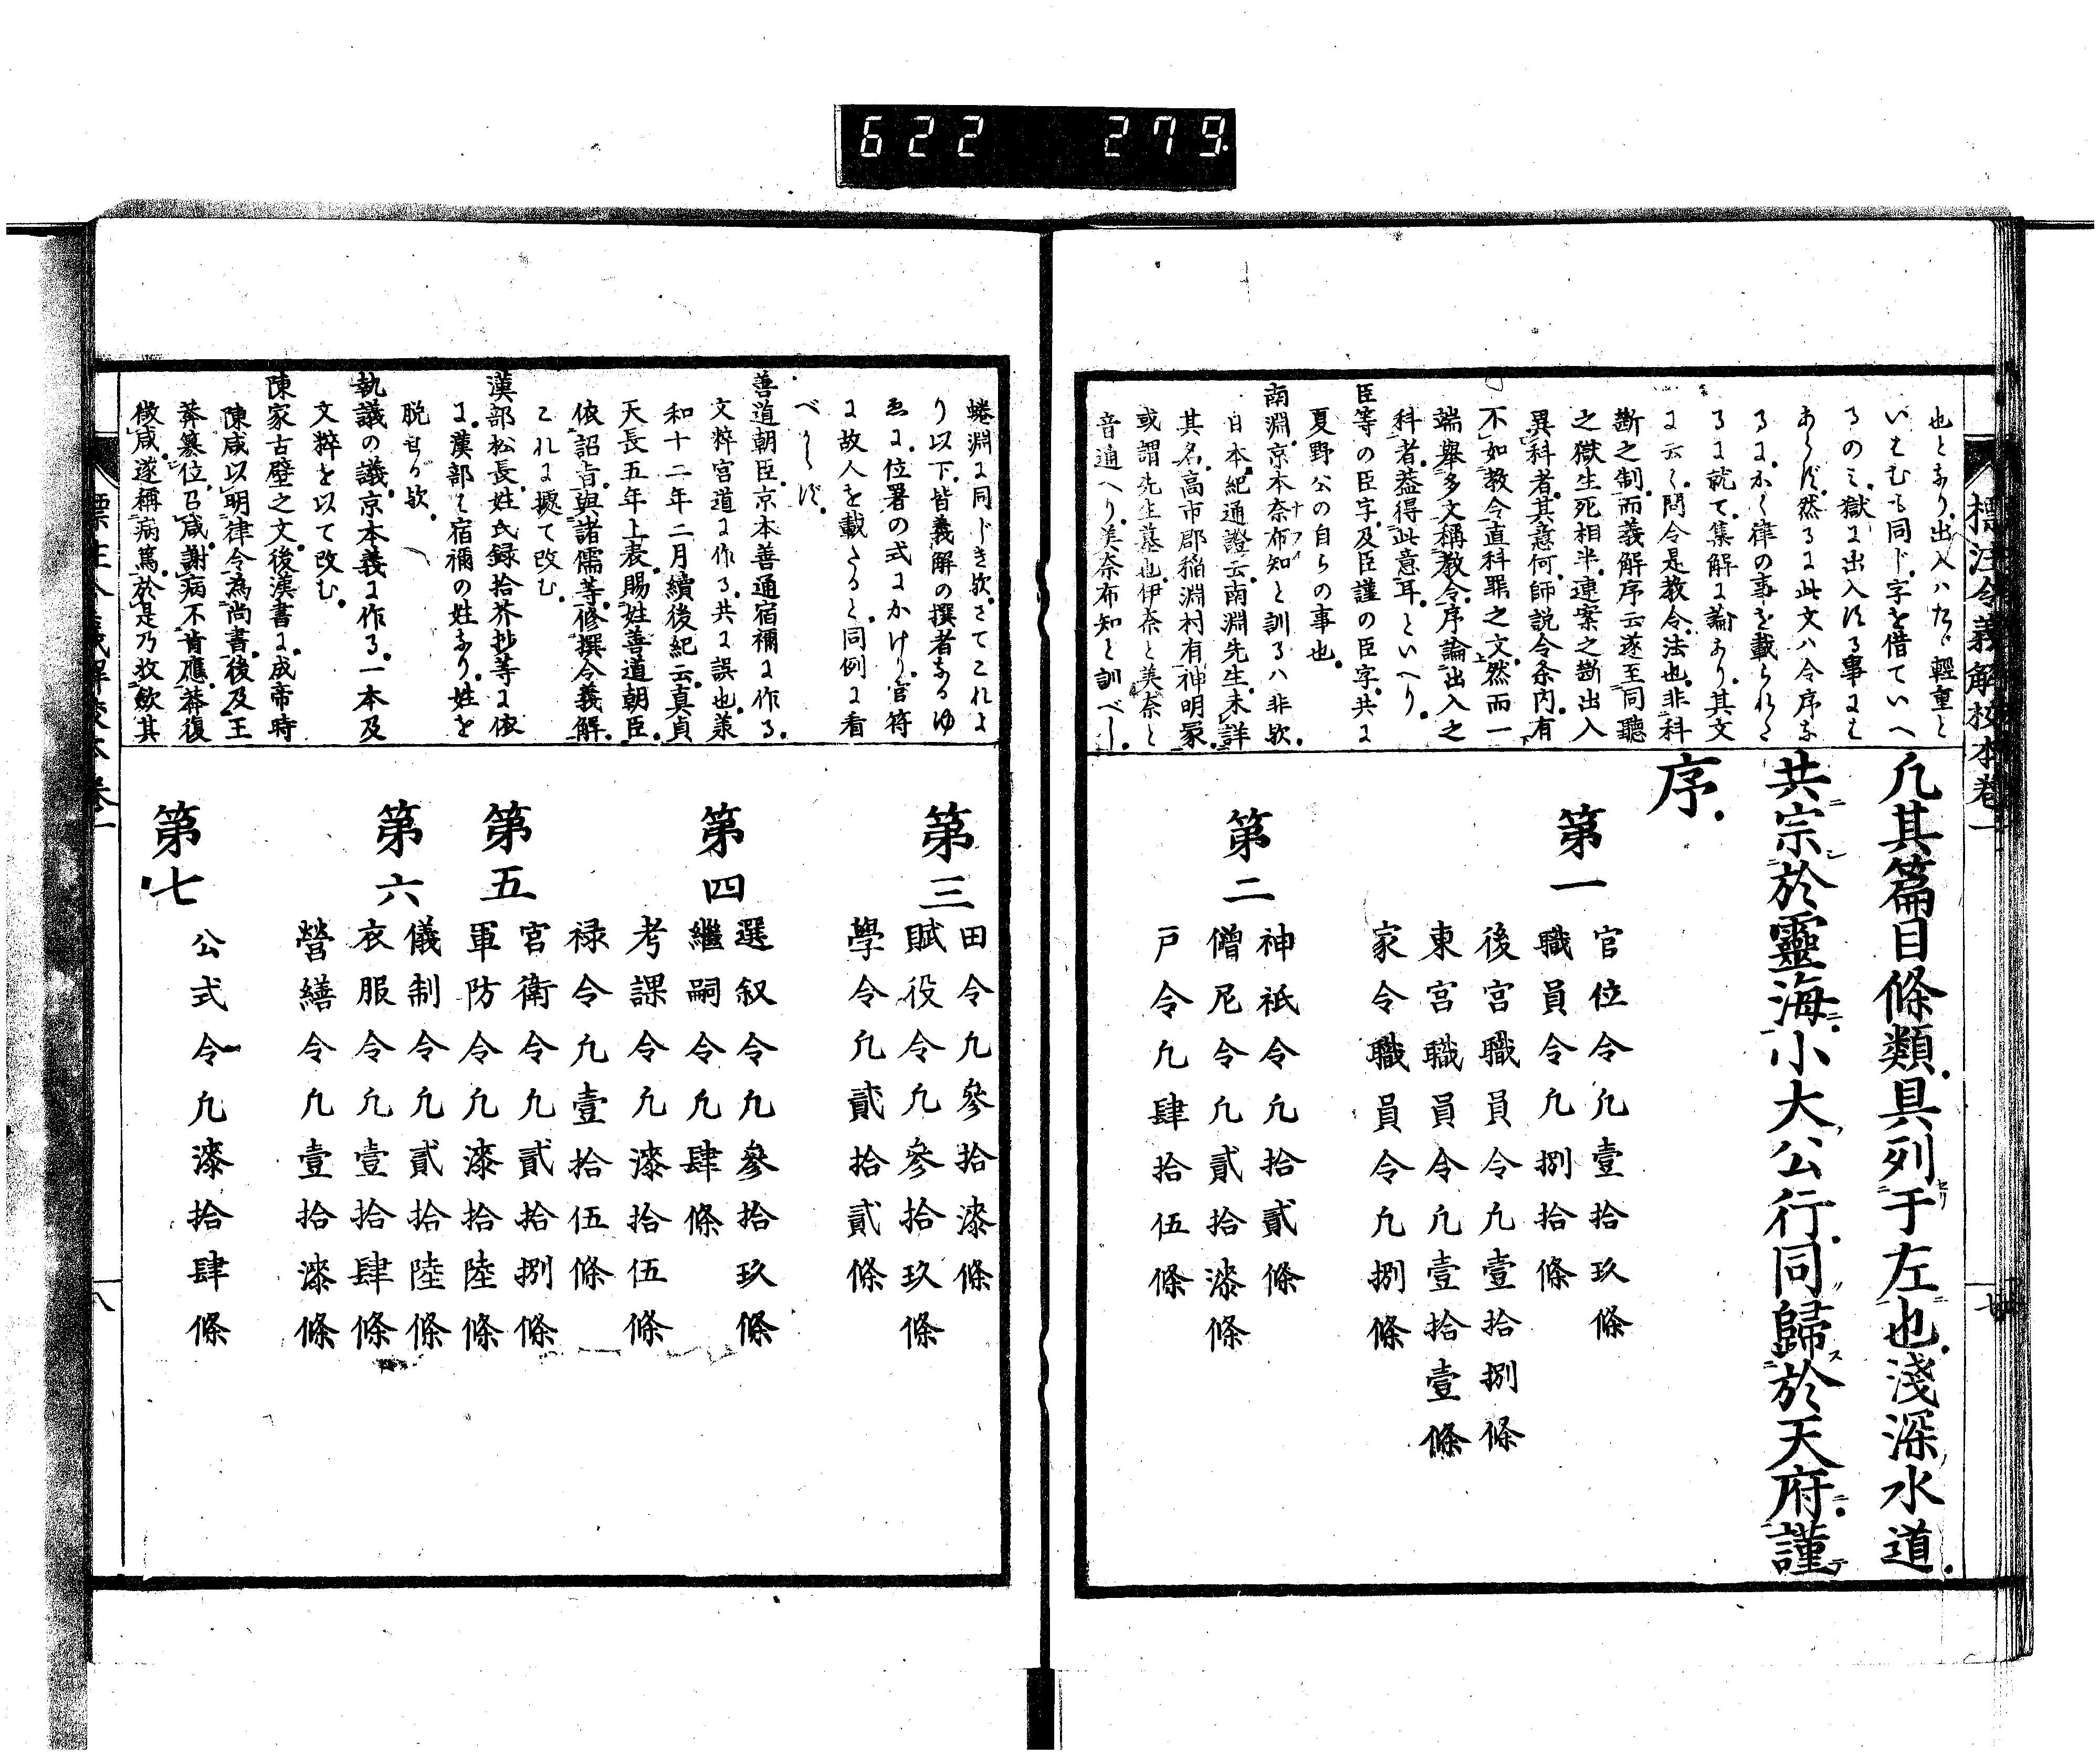 622 279
標注令義解挍本卷一
也となり出入ハたゞ輕重と
いはむも同ド字を借ていへ
るのミ獄に出入する事には
あらず然るに此文ハ令序な
るにかく律の事を載られた
るに就て集解に論あり其文
に云く問令是教令法也非科
斷之制而義解序云遂至同聽
之獄生死相半連案之斷出入
異科者其意何師説令条内有
不如教令直科罪之文然而一
端舉多文稱教令序論出入之
科者葢得此意耳といへり
臣等の臣字及臣謹の臣字共に
夏野公の自らの事也
南淵京本奈布知と訓るハ非歟
日本紀通證云南淵先生未詳
其名高市郡稲淵村有神明冢
或謂先生墓也伊奈と美奈と
音通へり美奈布知と訓べし
凢其篇目條類具列于左也淺深水道
共宗於靈海小大公行同歸於天府謹
序
第一
官位令凢壹拾玖條
職員令凢捌拾條
後宮職員令凢壹拾捌條
東宮職員令凢壹拾壹條
家令職員令凢捌條
第二
神祇令凢拾貳條
僧尼令凢貳拾漆條
戸令凢肆拾伍條
蜷淵に同じき歟さてこれよ
り以下皆義解の撰者なるゆ
ゑに位署の式にかけり官符
に故人を載たると同例に看
べからず
善道朝臣京本善通宿禰に作る
文粹宮道に作る共に誤也兼
和十二年二月續後紀云真貞
天長五年上表賜姓善道朝臣
依詔旨與諸儒等修撰令義解
これに據て改む
漢部松長姓氏録拾芥抄等に依
に漢部ハ宿禰の姓なり姓を
脱せる歟
執議の議京本義に作る一本及
文粹を以て改む
陳家古壁之文後漢書に成帝時
陳咸以明律令為尚書後及王
莽簒位召咸謝病不肯應莽復
徴咸遂稱病篤於是乃收斂其
第三
田令凢參拾漆條
賦役令凢參拾玖條
學令凢貳拾貳條
第四
選叙令凢參拾玖條
繼嗣令凢肆條
考課令凢漆拾伍條
禄令凢壹拾伍條
第五
宮衛令凢貳拾捌條
軍防令凢漆拾陸條
第六
儀制令凢貳拾陸條
衣服令凢壹拾肆條
營繕令凢壹拾漆條
第七
公式令凢漆拾肆條
八